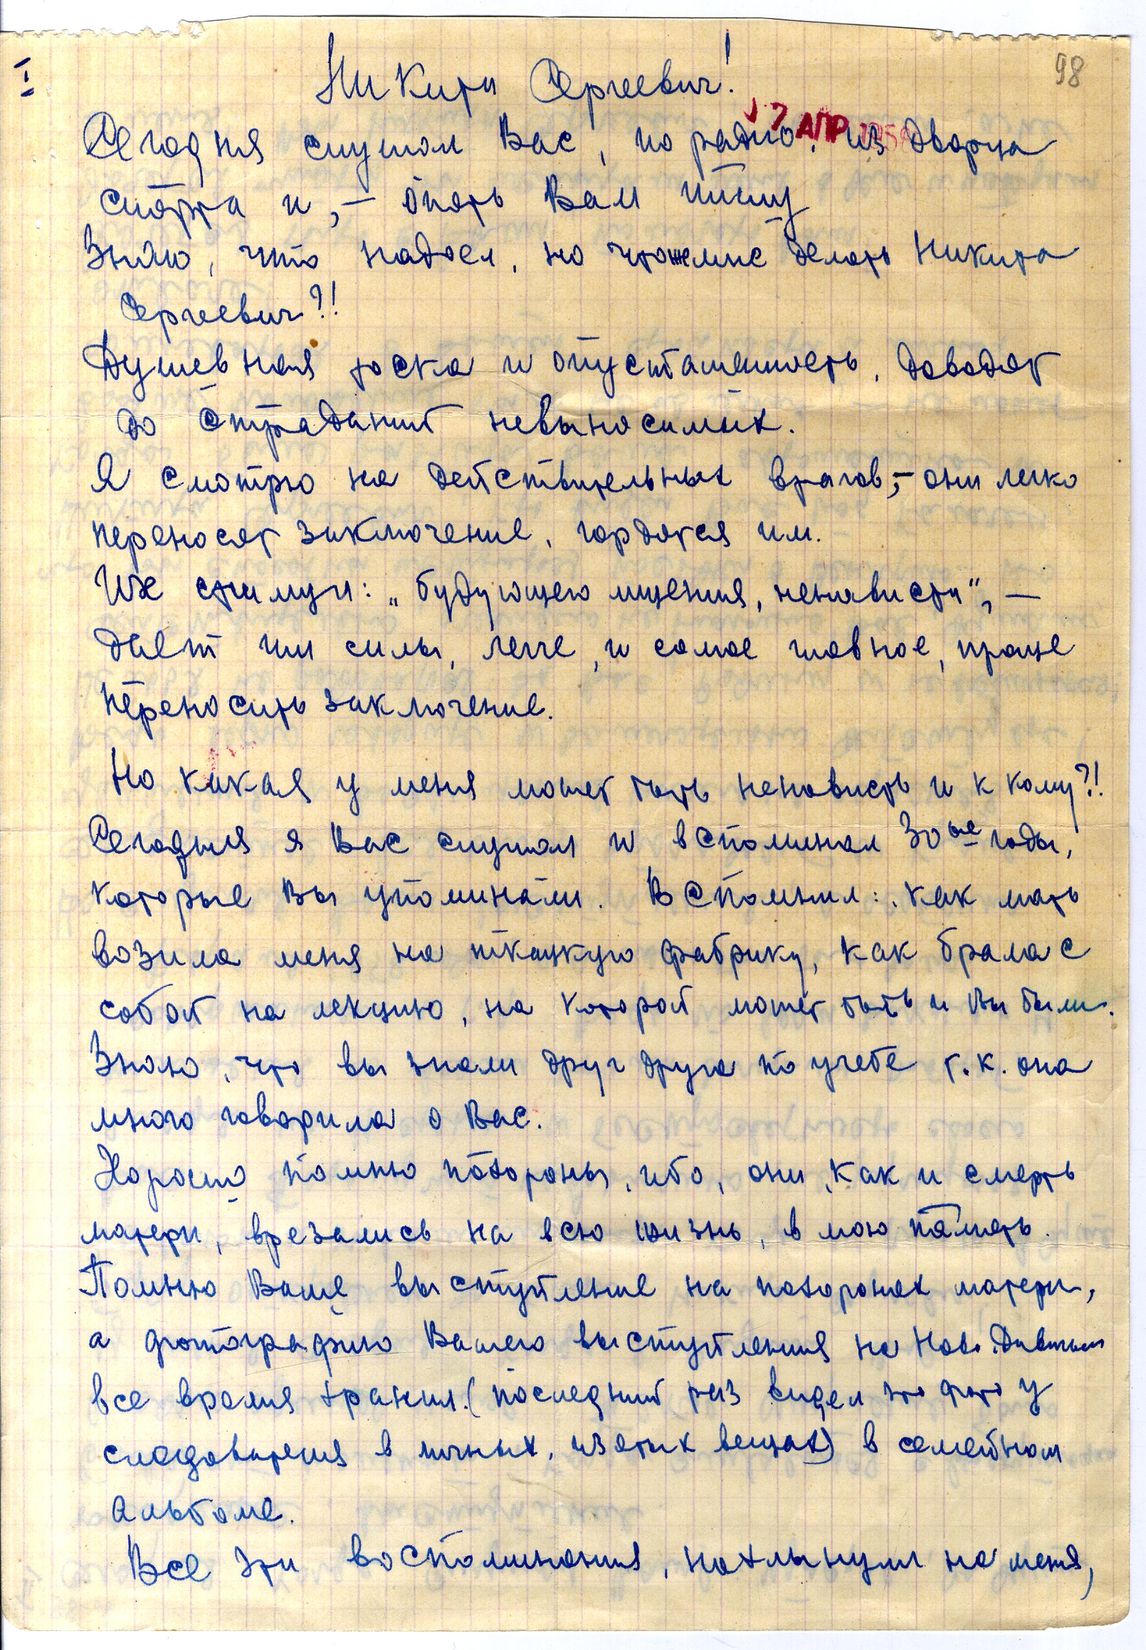 I
98
Никита Сергеевич!
7 АПР 195
Сегодня слушал Вас, по радио, из дворца
спорта и, – опять Вам пишу
Знаю, что надоел, но чтоже мне делать Никита
Сергеевич?!
Душевная тоска и опусташенность, доводят
до страданий невыносимых.
Я смотрю на действительных врагов, – они легко
переносят заключение, гордятся им.
Их стимул: „будующего мщения, ненависти", –
дает им силы, легче, и самое главное, проще
переносить заключение.
Но какая у меня может быть ненависть и к кому?!
Сегодня я Вас слушал и вспоминал 30ые годы,
которые Вы упоминали. Вспомнил: как мать
возила меня на ткацкую фабрику, как брала с
собой на лекцию, на которой может быть и Вы были.
Знаю, что вы знали друг друга по учебе т.к. она
много говорила о Вас.
Хорошо помню похороны, ибо, они, как и смерть
матери, врезались на всю жизнь, в мою память.
Помню Ваше выступление на похоронах матери,
а фотографию Вашего выступления на Ново.Девичьем
все время хранил (последний раз видел это фото у
следователя в личных, изятых вещах) в семейном
альбоме.
Все эти воспоминания, нахлынули на меня,